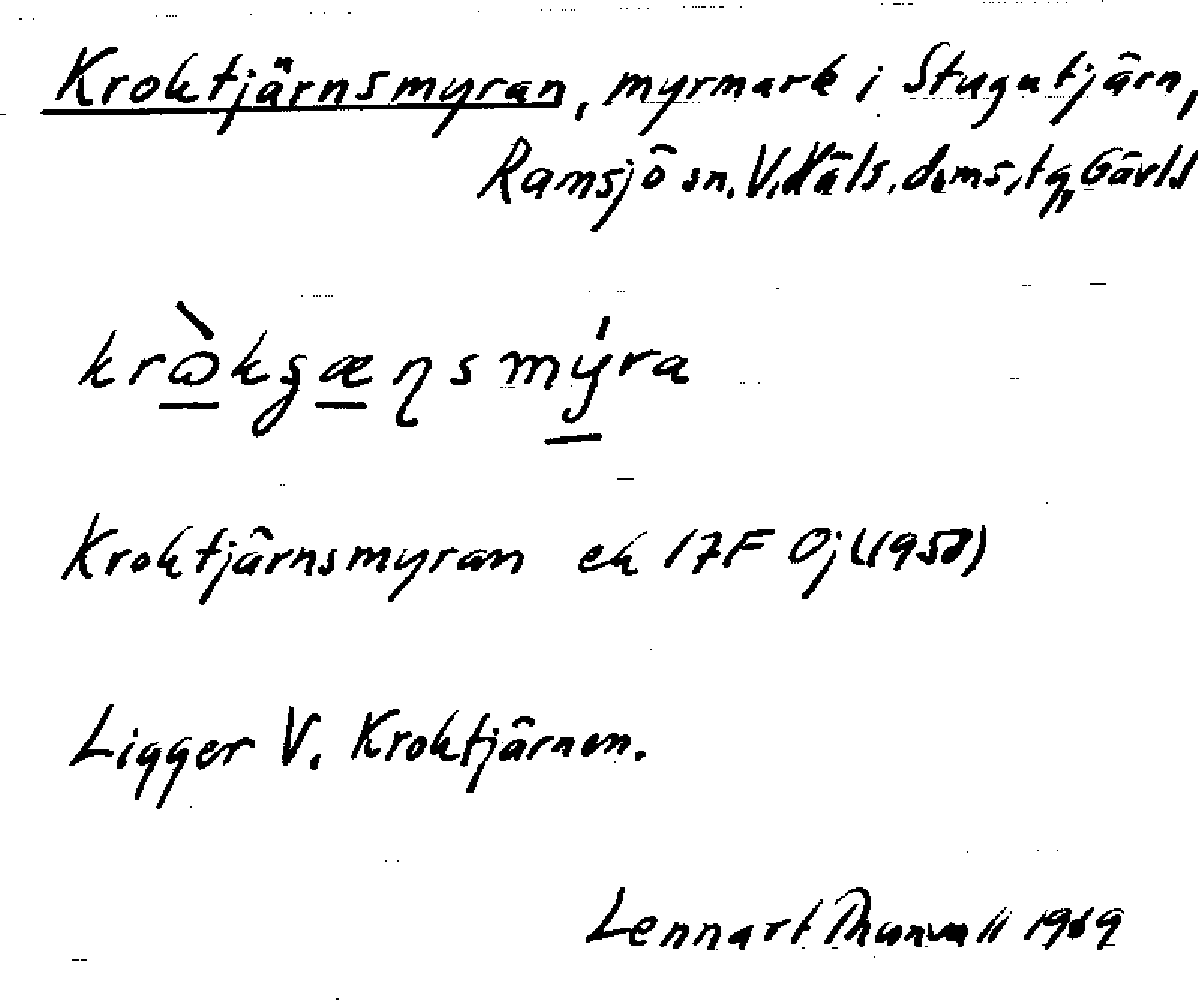 Kroktjärnsmyran, myrmark i Stugutjärn,
Ramsjö sn. V. Häls. doms. tg, Gävls
Kroktjärnsmyran ek 17F Öj (1958)
Ligger V. Kroktjärnen.
Lennart Thunvall 1969